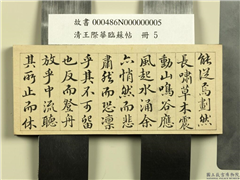 故書 000486N000000005
清王際華臨蘇帖 冊 5
能從焉劃然
長嘯草木震
動山鳴谷應
風起水涌余
亦悄然而悲
肅然而恐凜
乎其不可留
也反而登舟
放乎中流聽
其所止而休